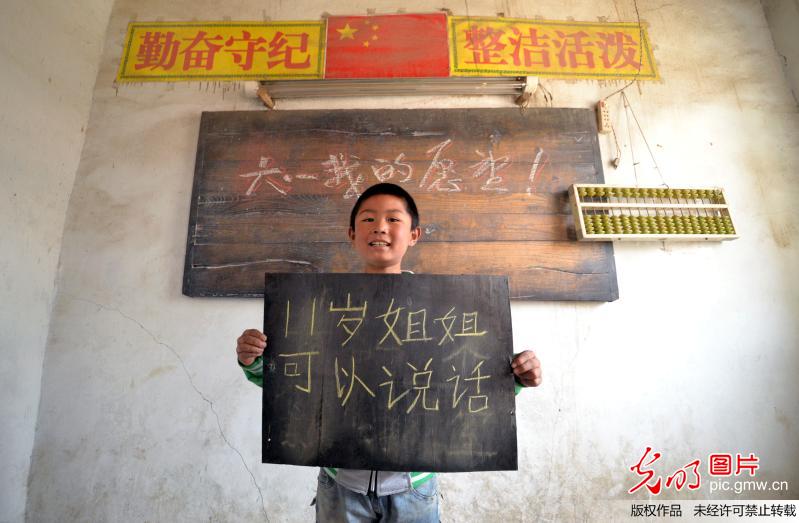 勤奋守纪 整洁活泼
六一我的愿望!
11岁姐姐
可以说话
光明图片
pic.gmw.cn
版权作品 未经许可禁止转载